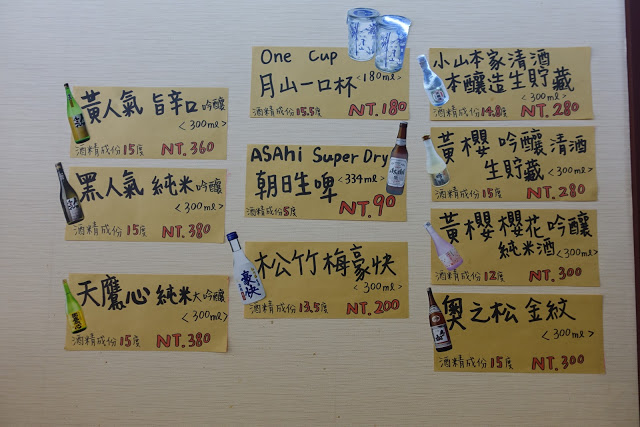 黃人氣 旨辛口 吟釀
<300ml>
酒精成份15度 NT.360
黑人氣 純米吟釀
<300ml>
酒精成份15度 NT.380
天鷹心 純米大吟釀
<300ml>
酒精成份15度 NT.380
One Cup
月山一口杯 <180ml>
酒精成份15.5度 NT.180
ASAhi Super Dry
朝日生啤 <334ml>
酒精成份5度 NT.90
松竹梅豪快
<300ml>
酒精成份13.5度 NT.200
豪快
小山本家清酒
本釀造生貯藏
<300ml>
酒精成份14.8度 NT.280
黃櫻 吟釀清酒
生貯藏 <300ml>
酒精成份15度 NT.280
黃櫻櫻花吟釀
純米酒 <300ml>
酒精成份12度 NT.300
奧之松金紋
<300ml>
酒精成份15度 NT.300